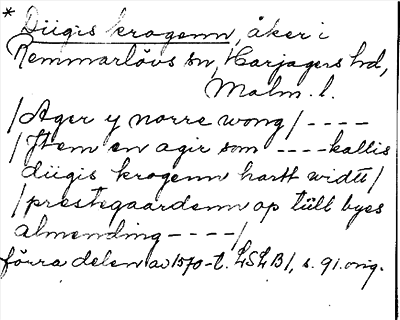 * Diigis krogenn, åker i
Remmarlövs sn, Harjagers hd,
Malm. l.
/Ager y norre wong/ ----
/Jtem en agir som ----kallis
diigis krogenn hartt widtt/
/prestegaardenn op tiill byes
almending ----/
förra delen av 1570-t. LSLB/, s. 91. orig.